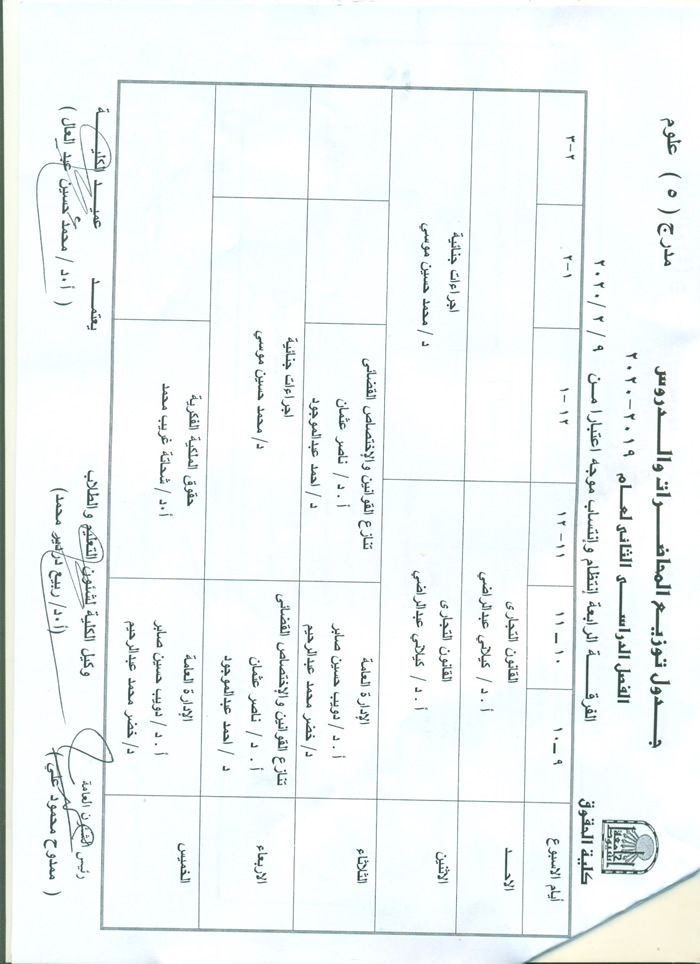 جامعة أسيوط
كلية الحقوق
جدول توزيع المحاضرات والدروس
مدرج ( ٥ ) علوم
الفصل الدراسى الثانى لعام ٢٠١٩-٢٠٢٠
الفرقة الرابعة إنتظام وإنتساب موجه اعتبارا من ٢٠٢٠/٢/٩
أيام الاسبوع
٩ – ١٠
١٠ – ١١
١١ – ١٢
١٢ – ١
١ – ٢
٢ – ٣
الاحد
القانون التجارى
أ . د / كيلاني عبدالراضي
الاثنين
القانون التجارى
أ . د / كيلاني عبدالراضي
اجراءات جنائية
د / محمد حسين موسي
الثلاثاء
الإدارة العامة
أ . د / دويب حسين صابر
د / خضر محمد عبدالرحيم
تنازع القوانين والإختصاص القضائى
أ . د / ناصر عثمان
د / احمد عبدالموجود
الاربعاء
تنازع القوانين والإختصاص القضائى
أ . د / ناصر عثمان
د / احمد عبدالموجود
اجراءات جنائية
د/ محمد حسين موسي
الخميس
الإدارة العامة
أ . د / دويب حسين صابر
د / خضر محمد عبدالرحيم
حقوق الملكية الفكرية
أ٠د / شحاتة غريب محمد
رئيس الشئون العامة
( ممدوح محمود علي )
وكيل الكلية لشئون التعليم والطلاب
(أ٠د/ ربيع دردير محمد)
يعتمد
عميد الكلية
( أ٠د / محمد حسين عبد العال )